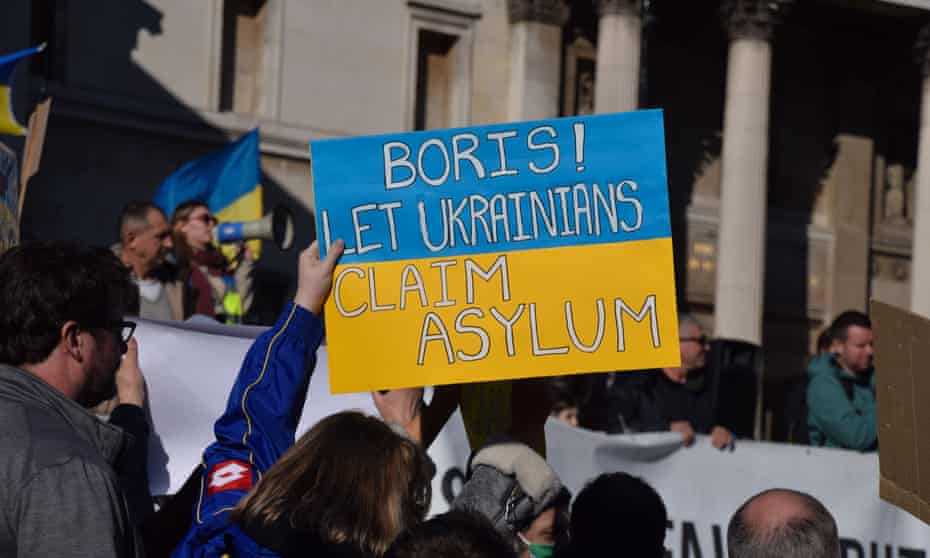 BORIS!
LET UKRAINIANS
CLAIM
ASYLUM